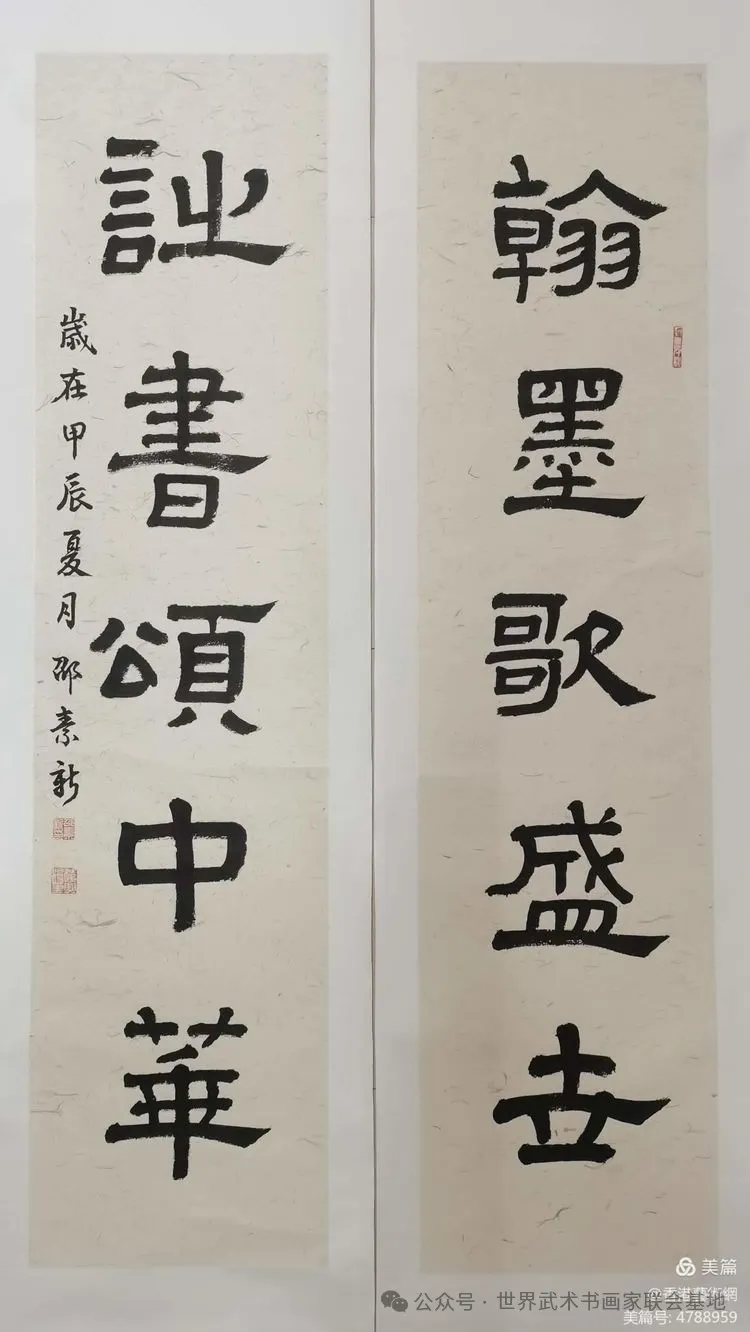 翰墨歌盛世
詩書頌中華
歲在甲辰夏月邵素新
美篇
@香港藝術網
公众号·世界武术书画家联会基地
美篇号: 4788959